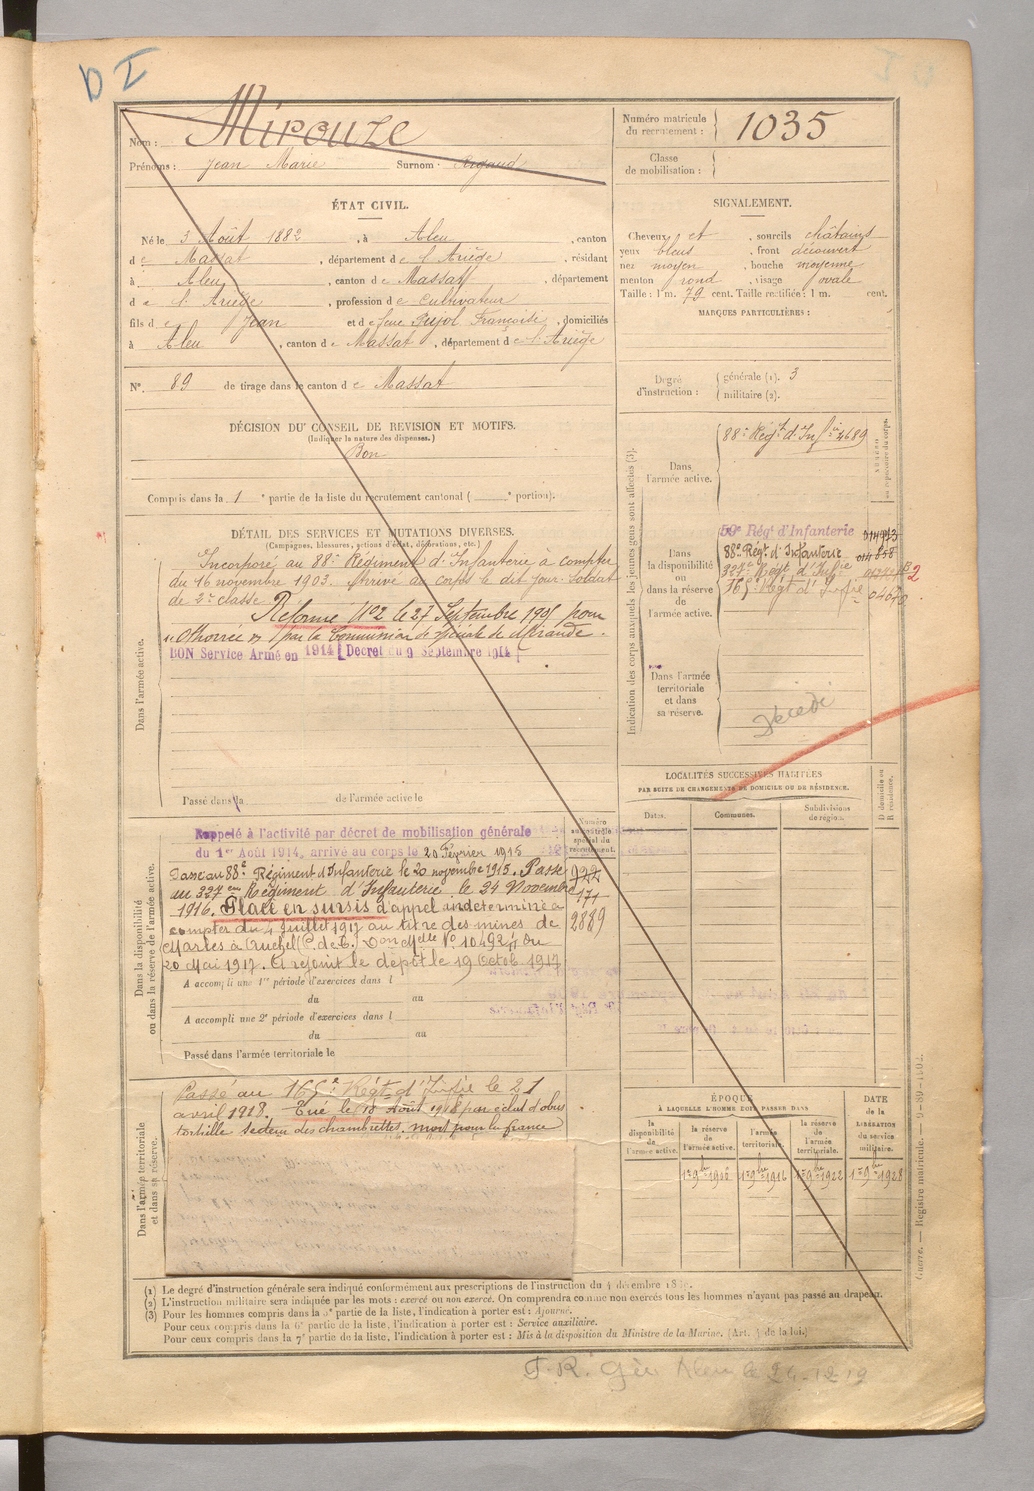 D I
Nom : Mirouze
Prénoms : Jean Marie Surnom :
Numéro matricule
du recrutement : 1035
Classe
de mobilisation :
ÉTAT CIVIL.
Né le 3 Août 1882, à Aleu, canton
de Massat, département de l'Ariège, résidant
à Aleu, canton de Massat, département
de l'Ariège, profession de cultivateur
fils de Jean et de feue Pujol Françoise, domiciliés
à Aleu, canton de Massat, département de l'Ariège
N° 89 de tirage dans le canton de Massat
SIGNALEMENT.
Cheveux et , sourcils châtains
yeux bleus , front découvert
nez moyen , bouche moyenne
menton rond , visage ovale
Taille : 1 m. 79 cent. Taille rectifiée : 1 m. cent.
MARQUES PARTICULIÈRES :
Degré
d'instruction :
générale (1). 3
militaire (2).
DÉCISION DU CONSEIL DE REVISION ET MOTIFS.
(Indiquer la nature des dispenses.)
Bon
Compris dans la 1e partie de la liste du recrutement cantonal ( e portion).
DÉTAIL DES SERVICES ET MUTATIONS DIVERSES.
(Campagnes, blessures, actions d'éclat, décorations, etc.)
Dans l'armée active.
Incorporé au 88e Régiment d'Infanterie à compter
du 16 novembre 1903. Arrivé au corps le dit jour. Soldat
de 2e classe.
Réformé N°2 le 27 Septembre 1905 pour
par la Commission spéciale de Mirande.
BON Service Armé en 1914 [Decret du 9 Septembre 1914]
Passé dans la de l'armée active le
Indication des corps auxquels les jeunes gens sont affectés (3).
Dans
l'armée active.
88e Régt d'Infie 4689
Numéro
au répertoire du corps.
Dans
la disponibilité
ou
dans la réserve
de
l'armée active.
59e Régt d'Infanterie
88e Régt d'Infanterie
327e Régt d'Infie
165e Régt d'Infie
Dans l'armée
territoriale
et dans
sa réserve.
Décédé
LOCALITÉS SUCCESSIVES HABITÉES
PAR SUITE DE CHANGEMENTS DE DOMICILE OU DE RÉSIDENCE.
Dates.
Communes.
Subdivisions
de région.
D domicile ou
R résidence.
Dans la disponibilité
ou dans la réserve de l'armée active.
Numéro
au contrôle
spécial du
recrutement.
922
171
2889
Rappelé à l'activité par décret de mobilisation générale
du 1er Août 1914, arrivé au corps le 20 Février 1915
Passé au 88e Régiment d'Infanterie le 20 novembre 1915. Passé
au 327eme Régiment d'Infanterie le 24 Novembre
1916. Placé en sursis d'appel indeterminé à
compter du 4 Juillet 1917 au titre des mines de
Marles à Auchel (P. de C.)
20 Mai 1917. A rejoint le dépôt le 19 Octob. 1917
A accompli une 1re période d'exercices dans l
du au
A accompli une 2e période d'exercices dans l
du au
Passé dans l'armée territoriale le
Dans l'armée territoriale
et dans sa réserve.
Passé au 165e Régt d'Infie le 21
avril 1918. Tué le 18 Août 1918 par éclat d'obus
tortille secteur des chambrettes, mort pour la france
ÉPOQUE
À LAQUELLE L'HOMME DOIT PASSER DANS
la
disponibilité
de
l'armée active.
la réserve
de
l'armée active.
l'armée
territoriale.
la réserve
de
l'armée
territoriale.
DATE
de la
LIBÉRATION
du service
militaire.
1er 9bre 1906 1er 9bre 1916 1er 9bre 1922 1er 9bre 1928
(1) Le degré d'instruction générale sera indiqué conformément aux prescriptions de l'instruction du 4 décembre
(2) L'instruction militaire sera indiquée par les mots : exercé ou non exercé. On comprendra comme non exercés tous les hommes n'ayant pas passé au drapeau.
(3) Pour les hommes compris dans la 5e partie de la liste, l'indication à porter est : Ajourné.
Pour ceux compris dans la 6e partie de la liste, l'indication à porter est : Service auxiliaire.
Pour ceux compris dans la 7e partie de la liste, l'indication à porter est : Mis à la disposition du Ministre de la Marine. (Art. 4 de la loi.)
Guerre. — Registre matricule.